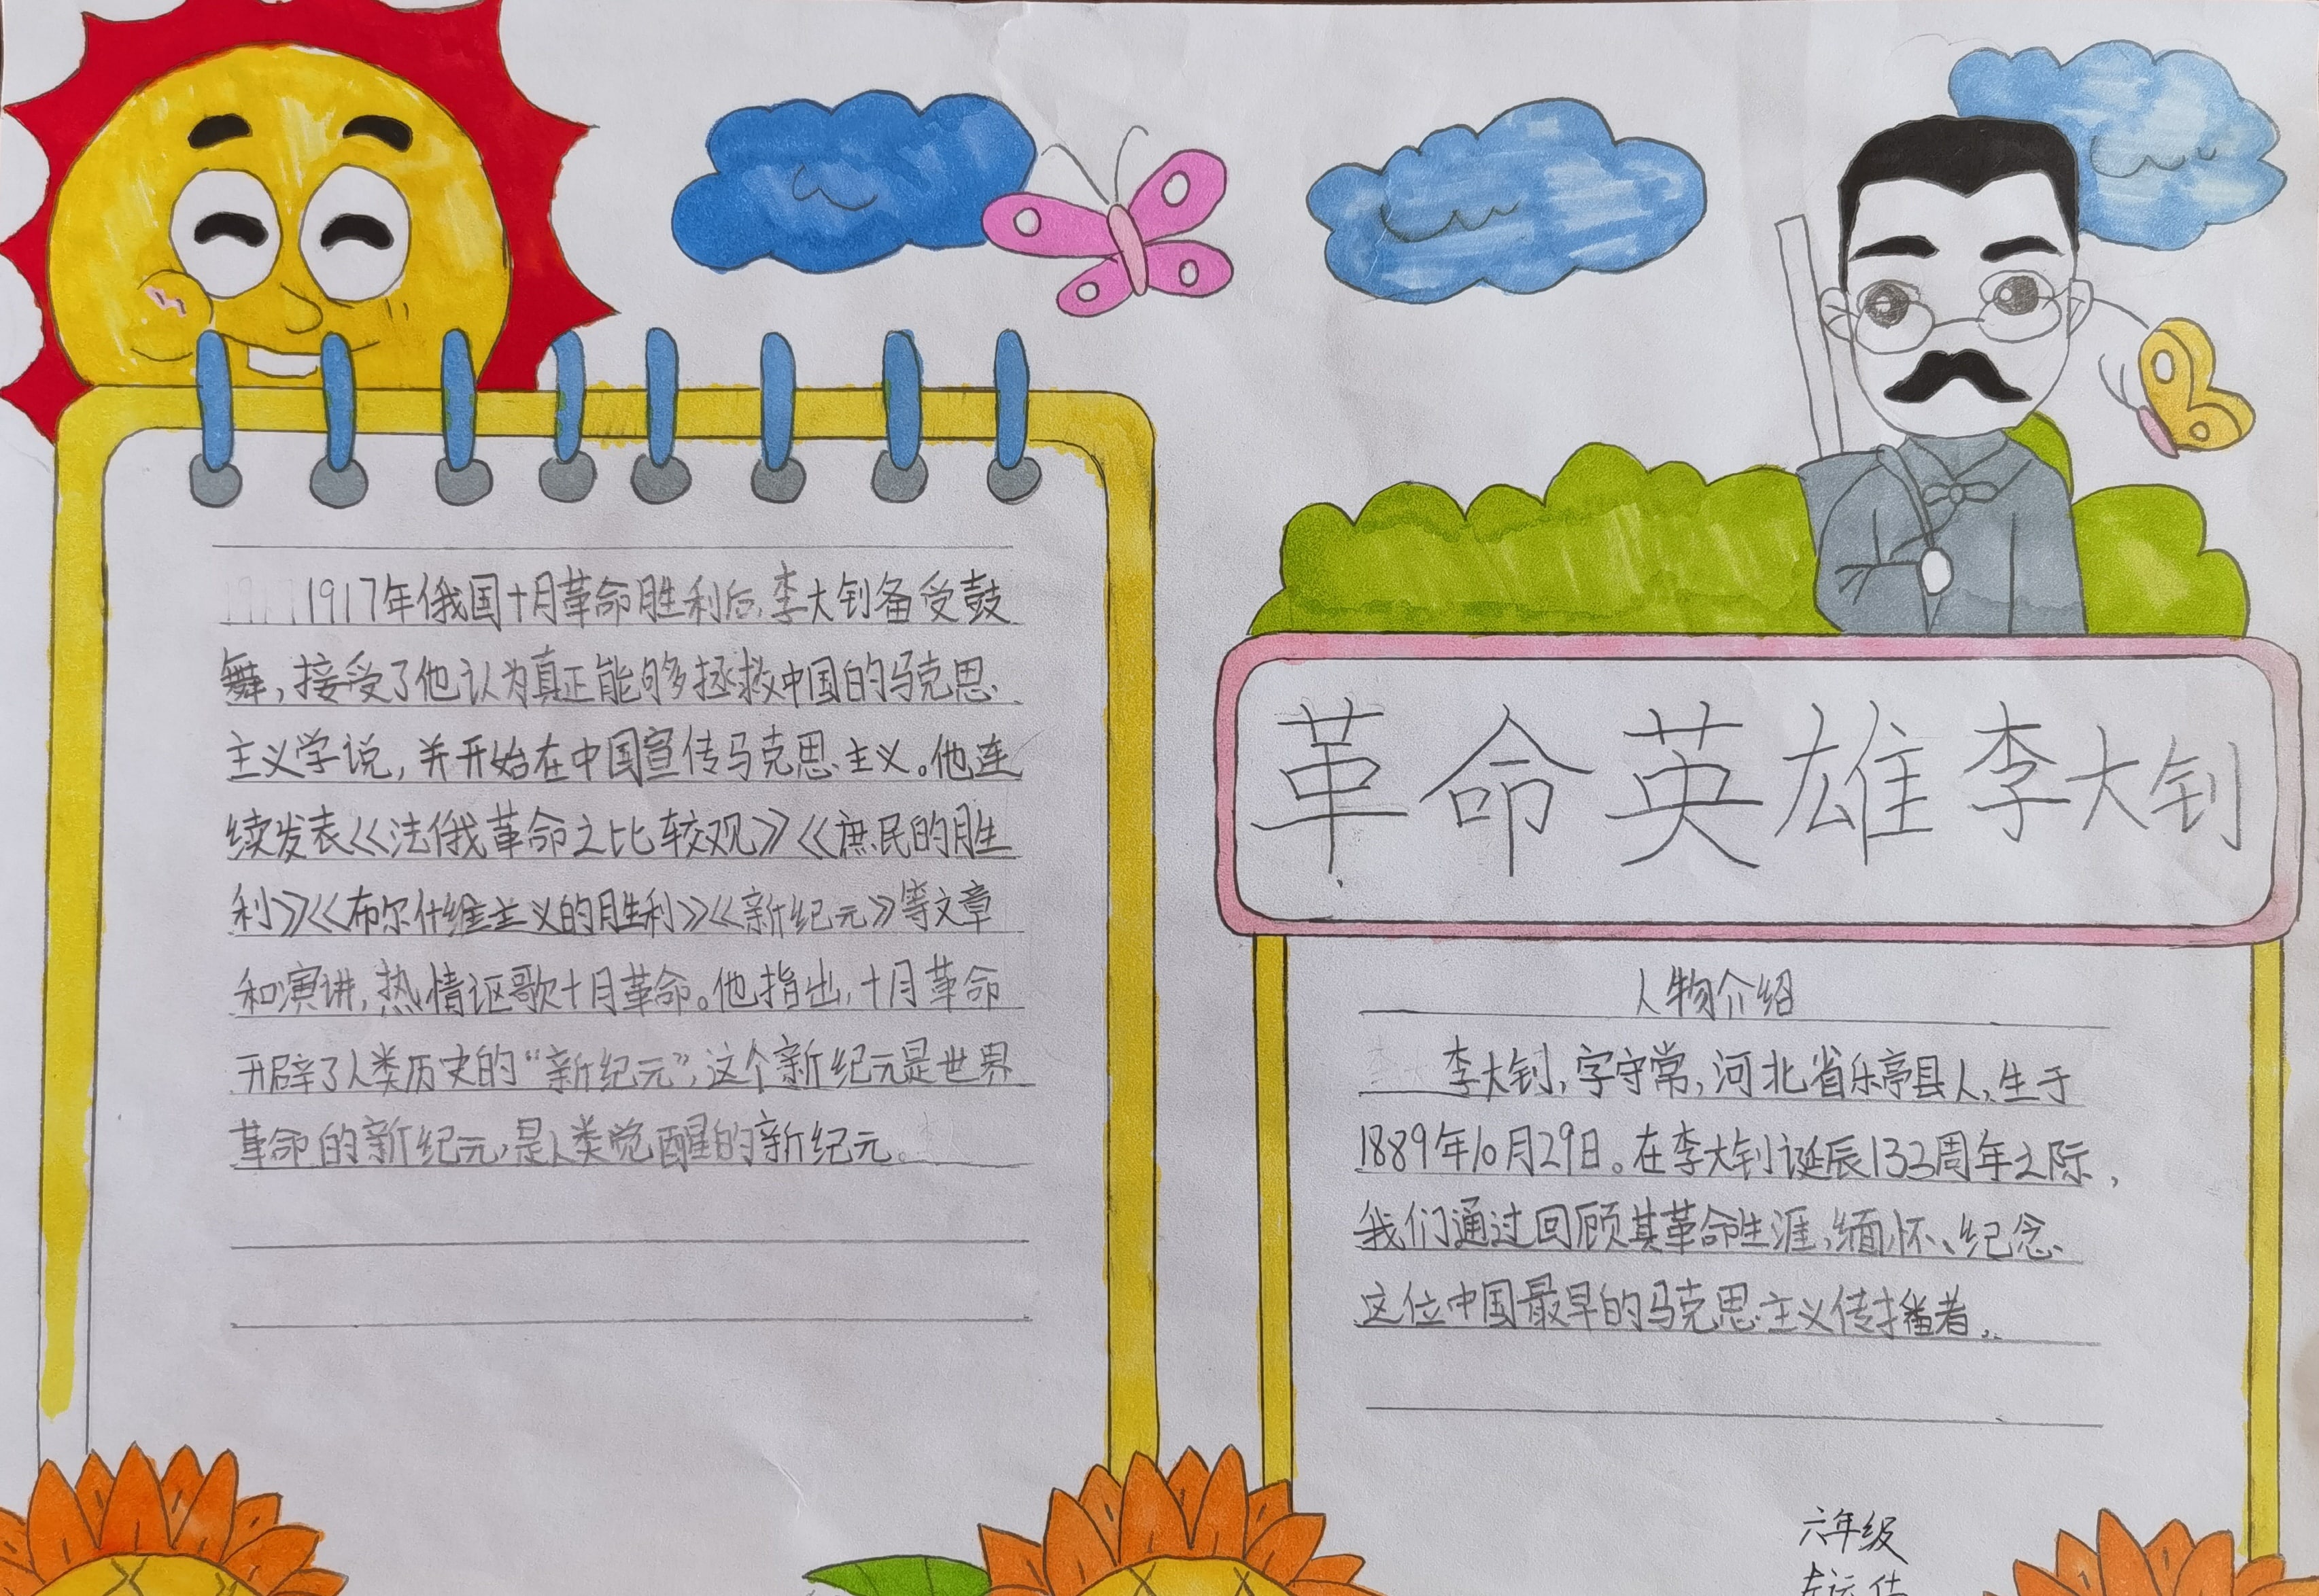 1917年俄国十月革命胜利后,李大钊备受鼓
舞,接受了他认为真正能够拯救中国的马克思
主义学说,并开始在中国宣传马克思主义。他连
续发表《法俄革命之比较观》《庶民的胜
利》《布尔什维主义的胜利》《新纪元》等文章
和演讲,热情讴歌十月革命。他指出,十月革命
开辟了人类历史的“新纪元”,这个新纪元是世界
革命的新纪元,是人类觉醒的新纪元。
革命英雄李大钊
人物介绍
李大钊,字守常,河北省乐亭县人,生于
1889年10月29日。在李大钊诞辰133周年之际,
我们通过回顾其革命生涯,缅怀、纪念
这位中国最早的马克思主义传播者。
六年级